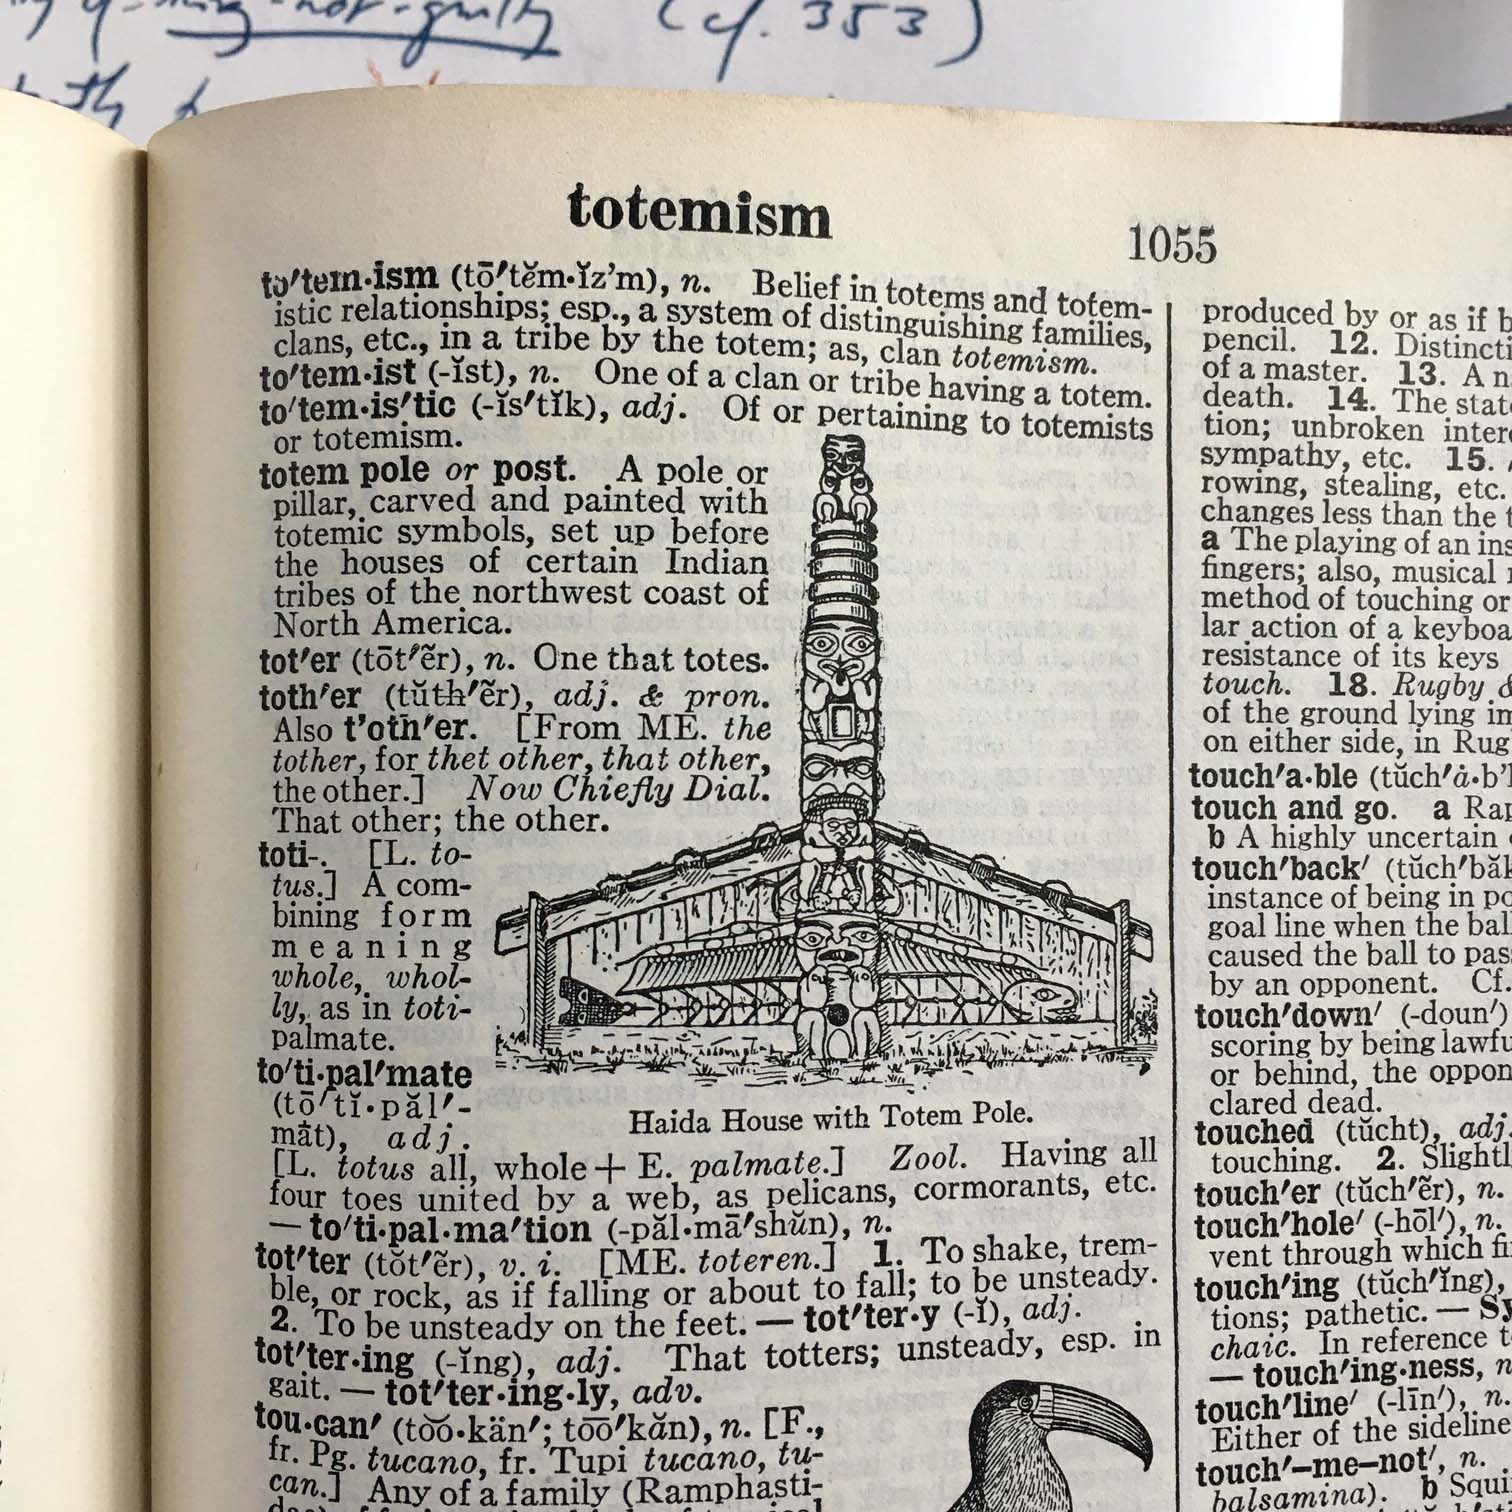 -not-guilty (cf. 353)
totemism
1055
to′tem·ism (tō′tĕm·ĭz’m), n. Belief in totems and totem-
istic relationships; esp., a system of distinguishing families,
clans, etc., in a tribe by the totem; as, clan totemism.
to′tem·ist (-ĭst), n. One of a clan or tribe having a totem.
to′tem·is′tic (-ĭs′tĭk), adj. Of or pertaining to totemists
or totemism.
totem pole or post. A pole or
pillar, carved and painted with
totemic symbols, set up before
the houses of certain Indian
tribes of the northwest coast of
North America.
tot′er (tōt′ẽr), n. One that totes.
toth′er (tŭth′ẽr), adj. & pron.
Also t’oth′er. [From ME. the
tother, for thet other, that other,
the other.] Now Chiefly Dial.
That other; the other.
toti-. [L. to-
tus.] A com-
bining form
meaning
whole, whol-
ly, as in toti-
palmate.
to′ti·pal′mate
(tō′tĭ·păl′-
māt), adj.
[L. totus all, whole + E. palmate.] Zool. Having all
four toes united by a web, as pelicans, cormorants, etc.
— to′ti·pal·ma′tion (-păl·mā′shŭn), n.
tot′ter (tŏt′ẽr), v. i. [ME. toteren.] 1. To shake, trem-
ble, or rock, as if falling or about to fall; to be unsteady.
2. To be unsteady on the feet. — tot′ter·y (-ĭ), adj.
tot′ter·ing (-ĭng), adj. That totters; unsteady, esp. in
gait. — tot′ter·ing·ly, adv.
tou·can′ (to͝o·kän′; to͞o′kăn), n. [F.,
fr. Pg. tucano, fr. Tupi tucano, tu-
can.] Any of a family (Ramphasti-
Haida House with Totem Pole.
produced by or as if
pencil. 12.
of a master. 13. A
death. 14. The
tion; unbroken
sympathy, etc. 15.
rowing, stealing, etc.
changes less than the
a The playing of an
fingers; also, musical
method of touching or
lar action of a
resistance of its keys
touch. 18. Rugby &
of the ground lying
on either side, in
touch′a·ble (tŭch′ȧ·b’l
touch and go. a
b A highly uncertain
touch′back′
instance of being in
goal line when the
caused the ball to
by an opponent. Cf.
touch′down′ (-doun′)
scoring by being
or behind, the
clared dead.
touched (tŭcht), adj.
touching. 2.
touch′er (tŭch′ẽr), n.
touch′hole′ (-hōl′), n.
vent through which
touch′ing (tŭch′ĭng),
tions; pathetic. —
chaic. In reference
— touch′ing·ness, n
touch′line′ (-līn′), n.
Either of the
touch′-me-not′, n.
balsamina). b